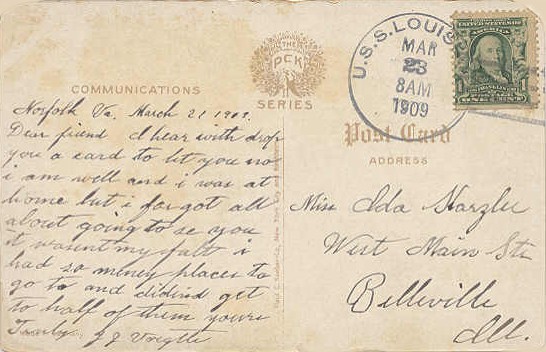 COMMUNICATIONS
PCK
SERIES
Norfolk Va, March 21 1909.
Dear friend I hear with drop
you a card to let you no
i am well and i was at
home but i forgot all
about going to se you
it wasent my falt i
had so meney places to
go to and didind get
to half of them yours
Truly J J
U.S.S. LOUIS
MAR
23
8AM
1909
UNITED STATES OF
AMERICA
1
ONE CENT
Post Card
ADDRESS
Miss Ida
West Main Str
Belleville
Ill.